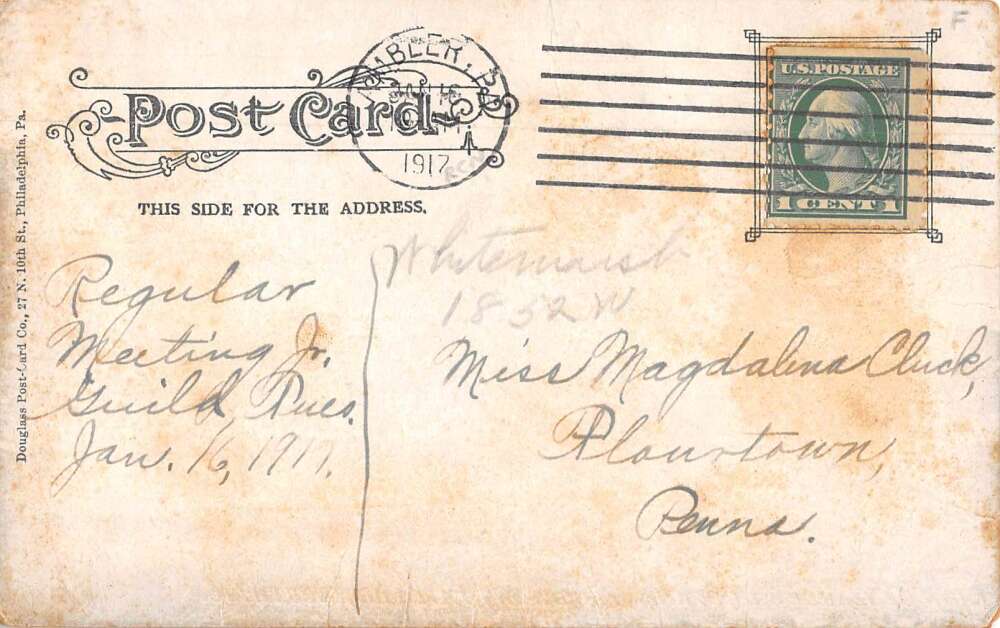 F
AMBLER, PA
JAN
1917
U.S. POSTAGE
1 CENT 1
Post Card
THIS SIDE FOR THE ADDRESS.
Douglass Post-Card Co., 27 N. 10th St., Philadelphia, Pa.
Regular
Meeting Jr.
Guild Tues.
Jan. 16, 1917.
Whitemarsh
1852 W
Miss Magdalena Cluck,
Flourtown,
Penna.